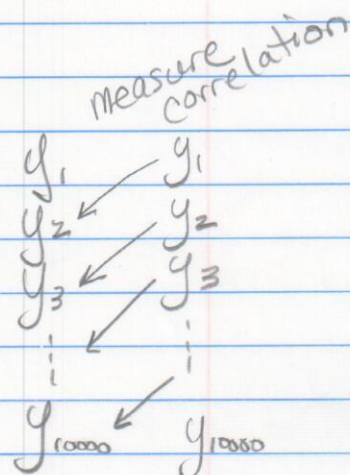 measure
correlation
y₁ y₁
y₂ y₂
y₃ y₃
y₁₀₀₀₀ y₁₀₀₀₀